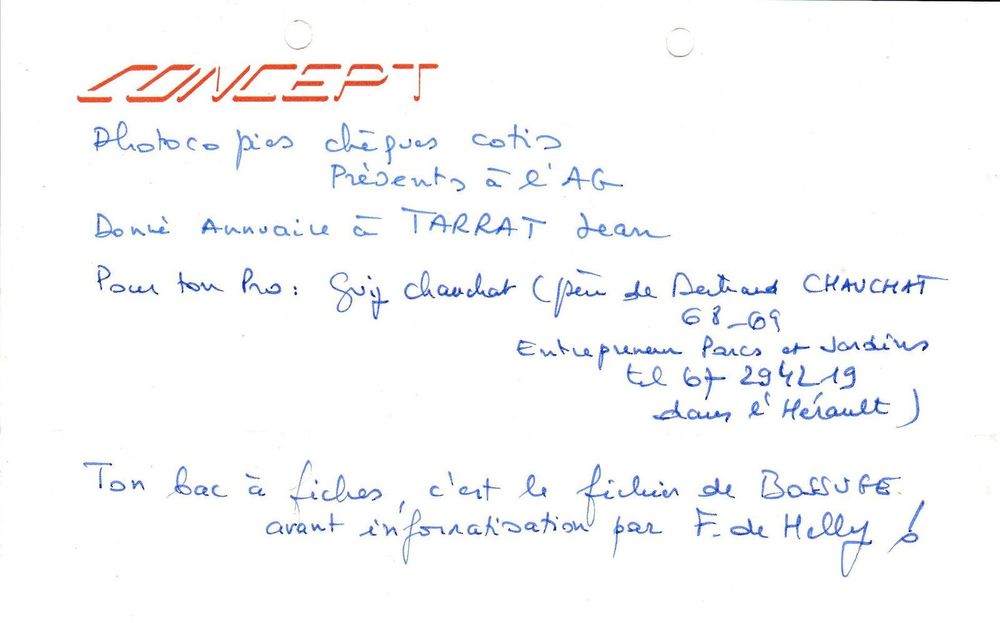 CONCEPT
Photocopies chèques cotis
Présents à l'AG
Donné Annuaire à TARRAT Jean
Pour ton Pro: Guy Chauchat (père de Bertrand CHAUCHAT
68-69
Entrepreneur Parcs et Jardins
tel 67 29 42 19
dans l'Hérault)
Ton bac à fiches, c'est le fichier de BOSSUGE
avant infornatisation par F. de Helly !